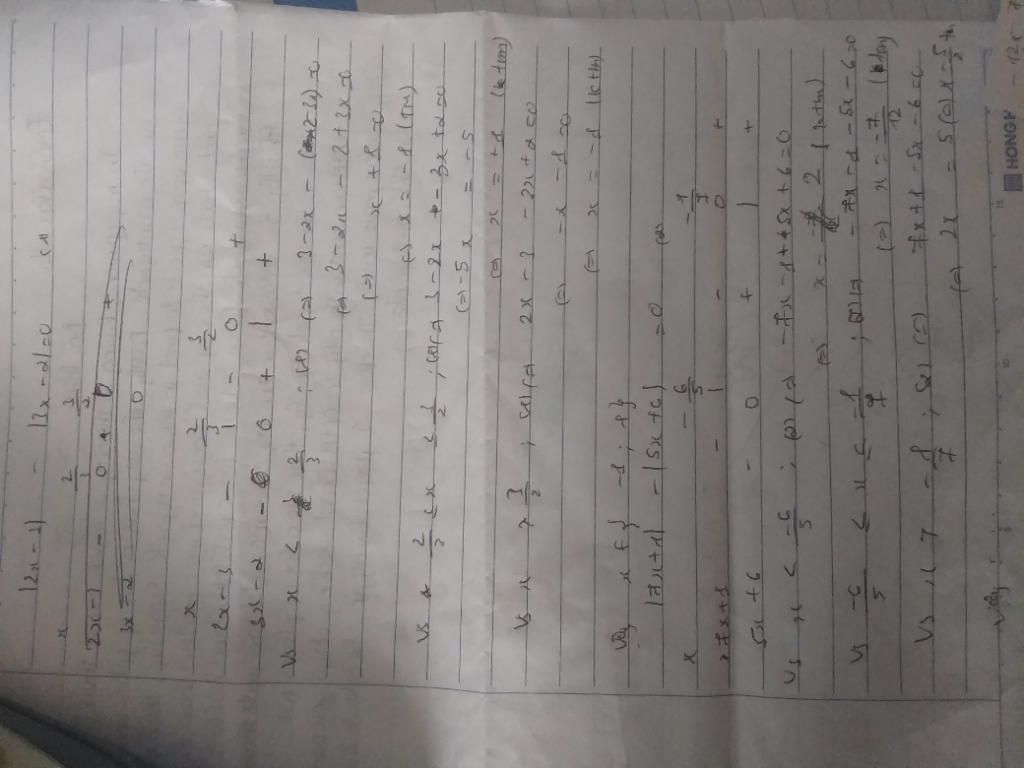 |2x-3| - |3x-2|=0 (1)
x 2/3 3/2
2x-3 - 0 +
3x-2 0
x 2/3 3/2
2x-3 - | - 0 +
3x-2 - 0 + | +
Với x < 2/3 ; (1) (=) 3-2x - (2)=0
(=) 3-2x - 2+3x=0
(=) x+1=0
(=) x=-1 (tm)
Với 2/3 ≤ x ≤ 3/2 ; (1)(=) 3-2x - 3x+2=0
(=) -5x = -5
(=) x = 1 (tm)
Với x > 3/2 ; (1)(=) 2x-3 - 3x+2=0
(=) -x-1=0
(=) x=-1 (ktm)
Vậy x ∈ { -1; 1}
|7x+1| - |5x+6| =0 (2)
x -6/5 -1/7
7x+1 - | - 0 +
5x+6 - 0 + | +
Với x < -6/5 ; (2)(=) -7x-1+5x+6=0
(=) x =
Với -6/5 ≤ x ≤ -1/7 ; (2)(=) -7x-1-5x-6=0
(=) x = -7/12 (tm)
Với x > -1/7 ; (2) (=) 7x+1-5x-6=0
(=) 2x = 5 (=) x = 5/2 tm
Vậy
HONGHA